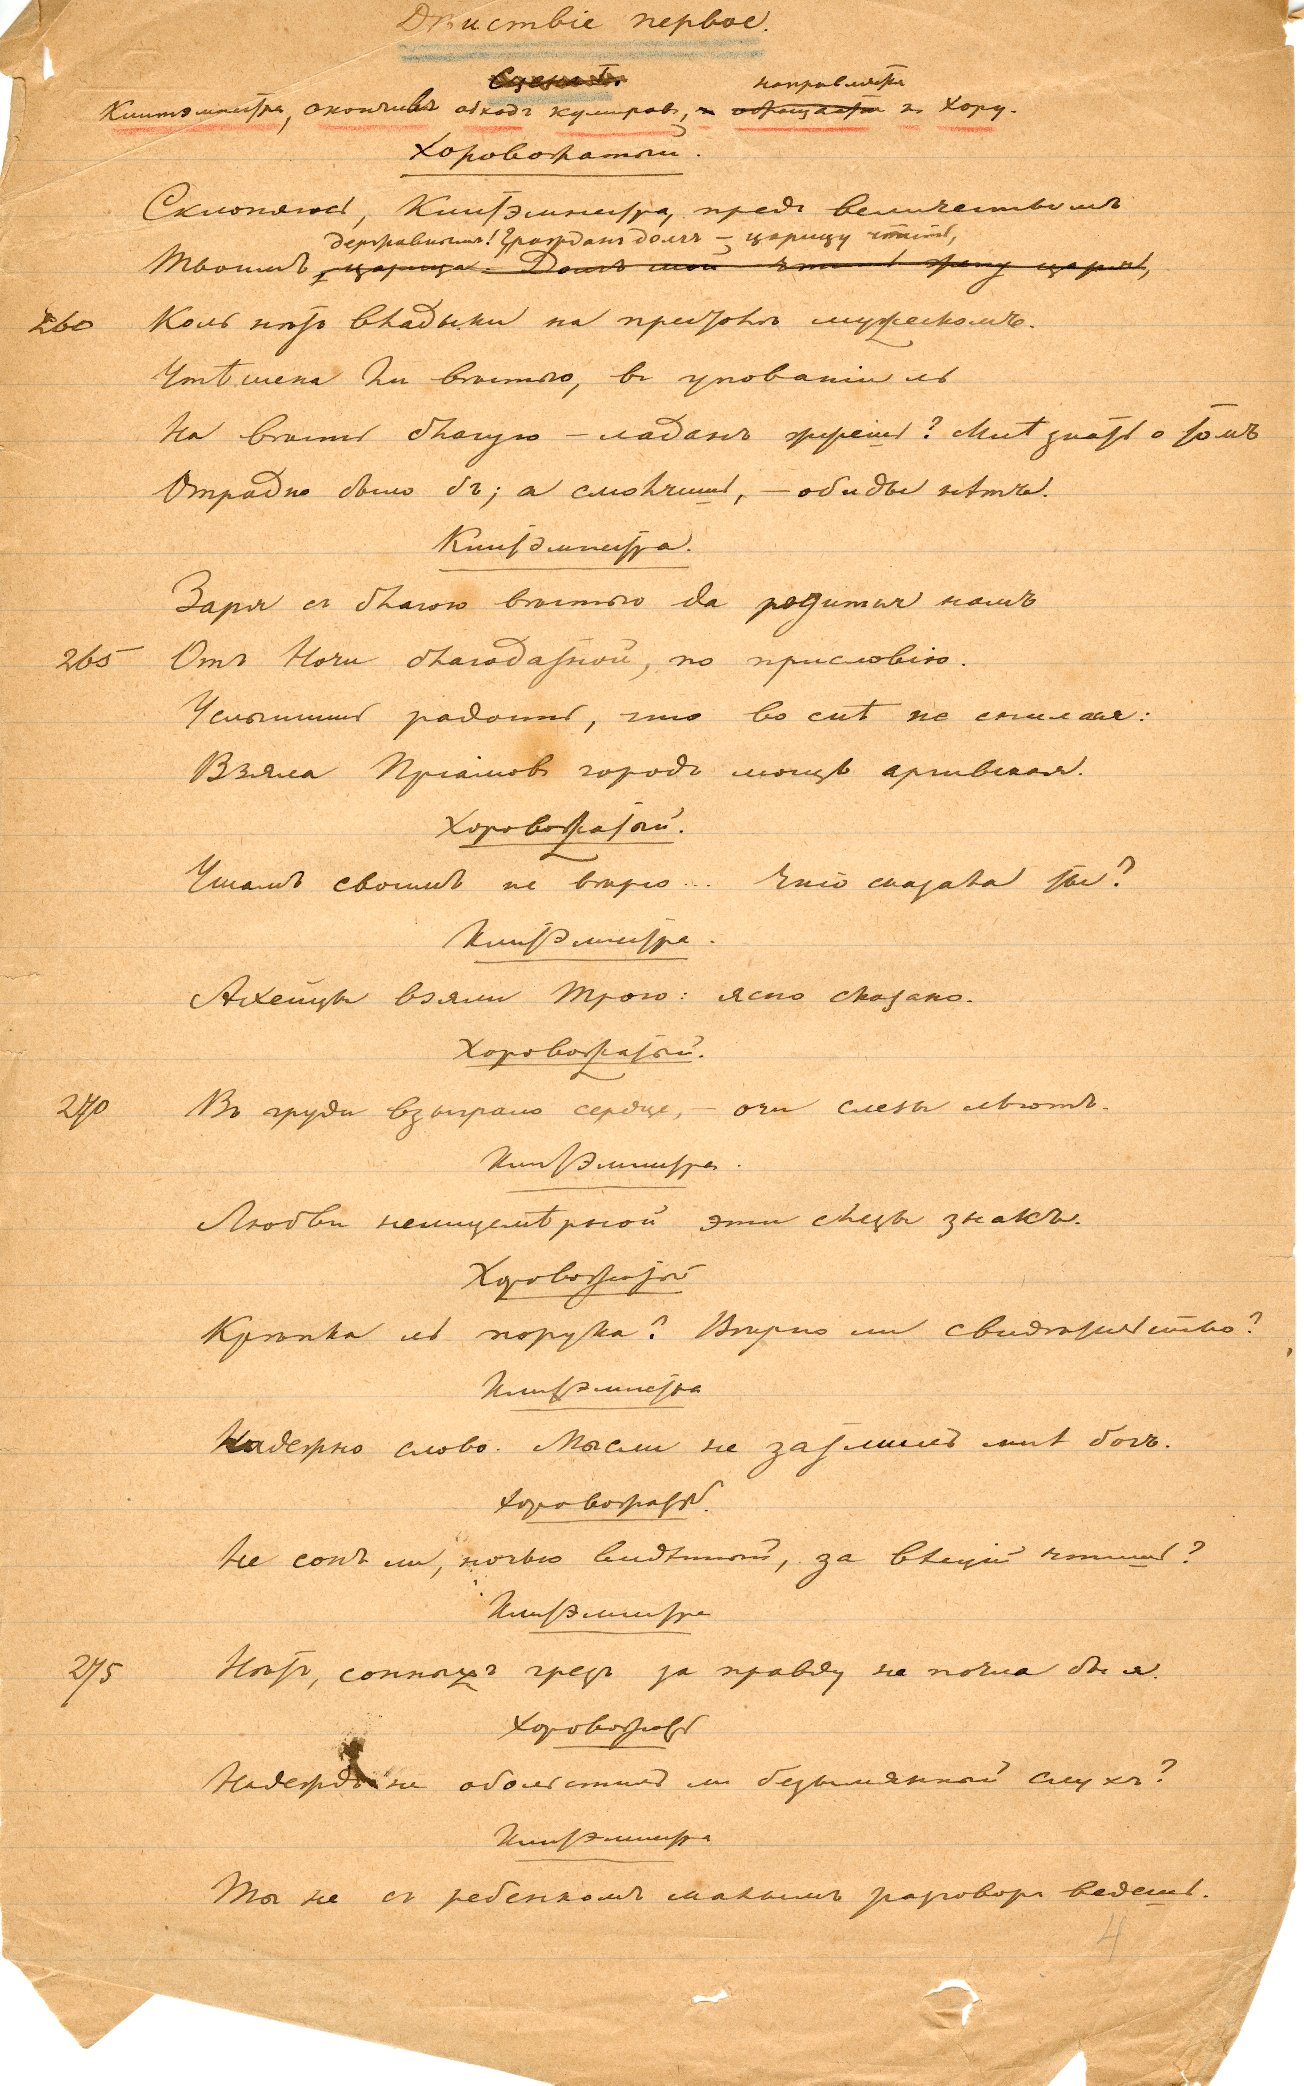 Дѣйствіе первое.
Сцена I.
направляется
Клитэмнестра, окончивъ обходъ кумировъ, обращается къ Хору.
Хоровожатый.
Склоняюсь, Клитэмнестра, предъ величествомъ
державнымъ! Гражданъ долгъ – царицу чтить,
Твоимъ, царица. Долгъ мой чтить жену царя,
260 Коль нѣтъ владыки на престолѣ мужескомъ.
Утѣшена ли вѣстью, въ упованіи ль
На вѣсть благую – ладанъ жжешь? Мнѣ знать о томъ
Отрадно было бъ; а смолчишь, – обиды нѣтъ.
Клитэмнестра.
Заря съ благою вѣстью да родится намъ
265 Отъ Ночи благодатной, по присловію.
Услышишь радость, что во снѣ не снилася:
Взяла Пріамовъ городъ мощь аргивская.
Хоровожатый.
Ушамъ своимъ не вѣрю... Что сказала ты?
Клитэмнестра.
Ахейцы взяли Трою: ясно сказано.
Хоровожатый.
270 Въ груди взыграло сердце, – очи слезы льютъ.
Клитэмнестра.
Любви нелицемѣрной эти слезы знакъ.
Хоровожатый
Крѣпка ль порука? Вѣрно ли свидѣтельство?
Клитэмнестра
Надежно слово. Мысли не затмилъ мнѣ богъ.
Хоровожатый.
Не сонъ ли, ночью видѣнный, за вѣщій чтишь?
Клитэмнестра
275 Нѣтъ, сонныхъ грезъ за правду не почла бы я.
Хоровожатый
Надеждъ не обольстилъ ли безымянный слухъ?
Клитэмнестра
Ты не съ ребенкомъ малымъ разговоръ ведешь.
4